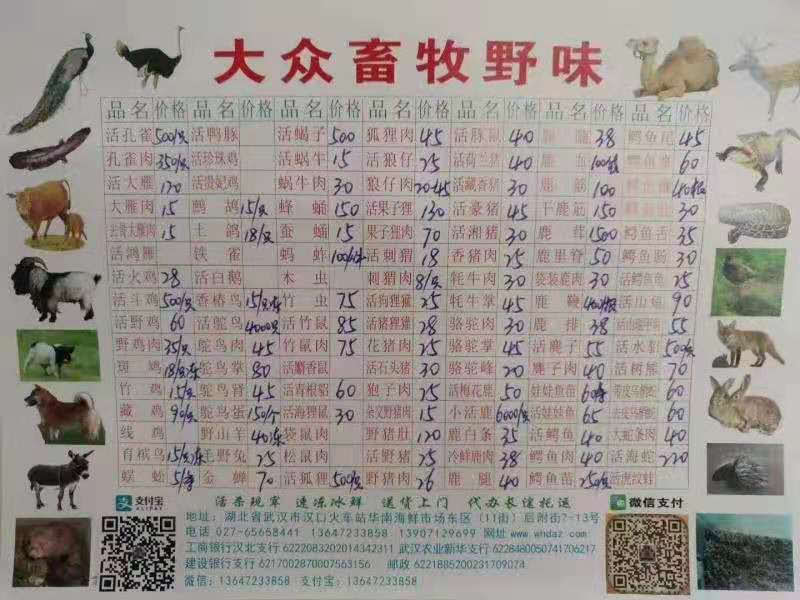 大众畜牧野味
品名 价格 品名 价格 品名 价格 品名 价格 品名 价格 品名 价格 品名 价格
活孔雀 500/只 活鸭豚 活蝎子 500 狐狸肉 45 活豚鼠 40 38 鳄鱼尾 45
孔雀肉 350/只 活珍珠鸡 活蜗牛 15 活狼仔 25 活荷兰猪 40 鹿血 60
活大雁 120 活贵妃鸡 蜗牛肉 30 狼仔肉 20-45 活藏香猪 30 鹿筋 100
大雁肉 15 鹧鸪 15/只 蜂蛹 150 活果子狸 130 活豪猪 45 干鹿筋 150 30
去骨大雁肉 15 土鸽 18/只 蚕蛹 15 果子狸肉 70 活湘猪 30 鹿茸 1500 鳄鱼舌 35
活鸿雁 铁雀 蚂蚱 活刺猬 18 香猪肉 25 鹿里脊 50 鳄鱼肠 30
活火鸡 28 活白鹅 木虫 刺猬肉 8/只 牦牛肉 30 袋装鹿肉 30 活鳄鱼龟 25
活斗鸡 500/只 香椿鸟 竹虫 75 活狗狸獾 25 牦牛掌 45 鹿鞭 活山龟 90
活野鸡 60 活鸵鸟 4000只 活竹鼠 85 活猪狸獾 28 骆驼肉 30 鹿排 38 55
野鸡肉 35/只 鸵鸟肉 45 竹鼠肉 75 花猪肉 25 骆驼掌 45 活麂子 55 活水蛇
斑鸠 鸵鸟掌 80 活麝香鼠 活石头猪 30 骆驼峰 20 麂子肉 40 活树熊 70
竹鸡 15/只 鸵鸟肾 45 活青根貂 60 狍子肉 25 活梅花鹿 50 娃娃鱼苗 60
藏鸡 90/只 鸵鸟蛋 150/个 活海狸鼠 30 杂交野猪肉 15 小活鹿 6000/只 活娃娃鱼 65 60
线鸡 野山羊 40 袋鼠肉 野猪肚 120 鹿白条 35 活鳄鱼 40 大蛇条肉 40
百槟鸟 15/只 毛野兔 25 松鼠肉 活野猪 25 冷鲜鹿肉 38 鳄鱼肉 40 活海蛇 220
蜈蚣 金蝉 70 活狐狸 500/只 野猪肉 26 鹿腿 40 鳄鱼苗 250/只
支付宝 ALIPAY 活杀现宰 速冻冰鲜 送货上门 代办长途托运 微信支付
地址：湖北省武汉市汉口火车站华南海鲜市场东区（1街）后附街7-13号
电话 027-65658441 13647233858 13907129699 网址 www.whdaz.com
工商银行汉北支行 6222083202014342311 武汉农业新华支行 6228480050741706217
建设银行支行 6217002870007563156 邮政 6221885200231709074
微信：13647233858 支付宝：13647233858